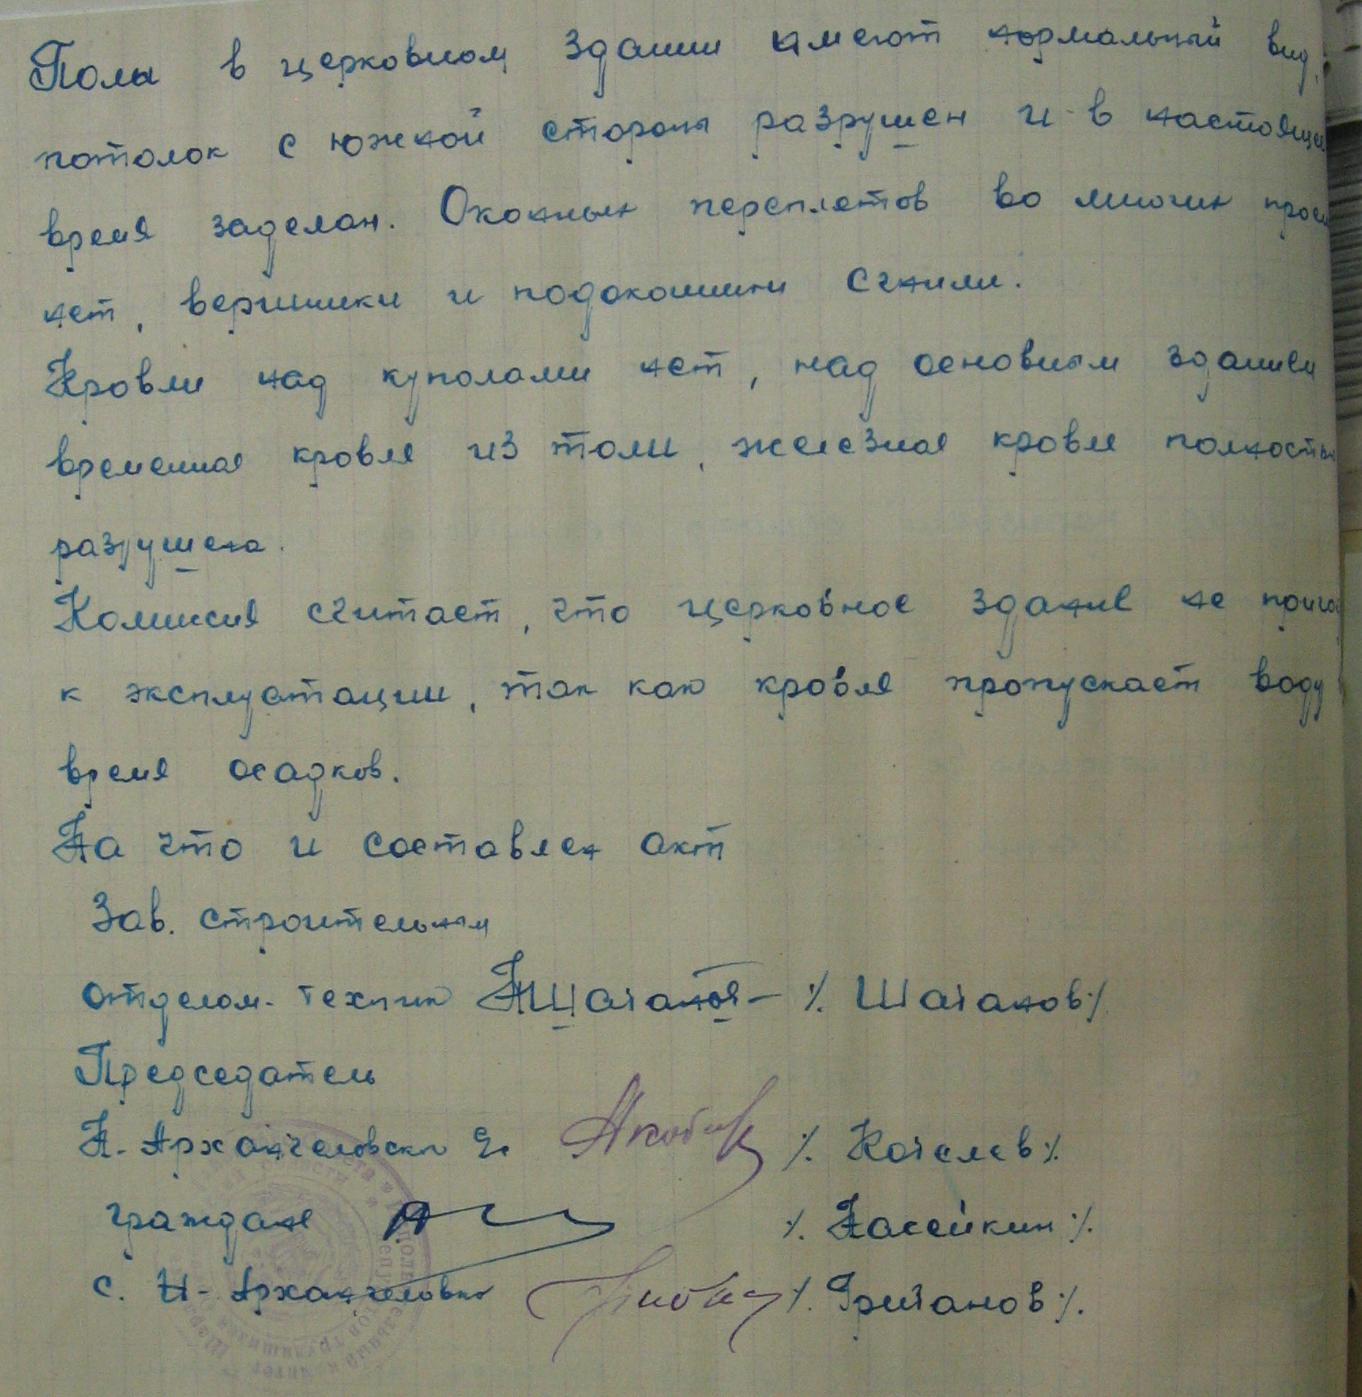 Полы в церковном здании имеют нормальный вид,
потолок с южной стороны разрушен и в настояще
время заделан. Оконных переплетов во многих прое
нет, вершники и подоконники сгнили.
Кровли над куполами нет, над основным зданием
временная кровля из толи, железная кровля полностью
разрушена.
Комиссия считает, что церковное здание не приго
к эксплуатации, так как кровля пропускает воду
время осадков.
На что и составлен акт
Зав. строительным
отделом-техник /. Шаганов ./.
Председатель
Н-Архангеловского /. Кобелев ./.
граждане ./. Насейкин ./.
с. Н-Архангеловки /.